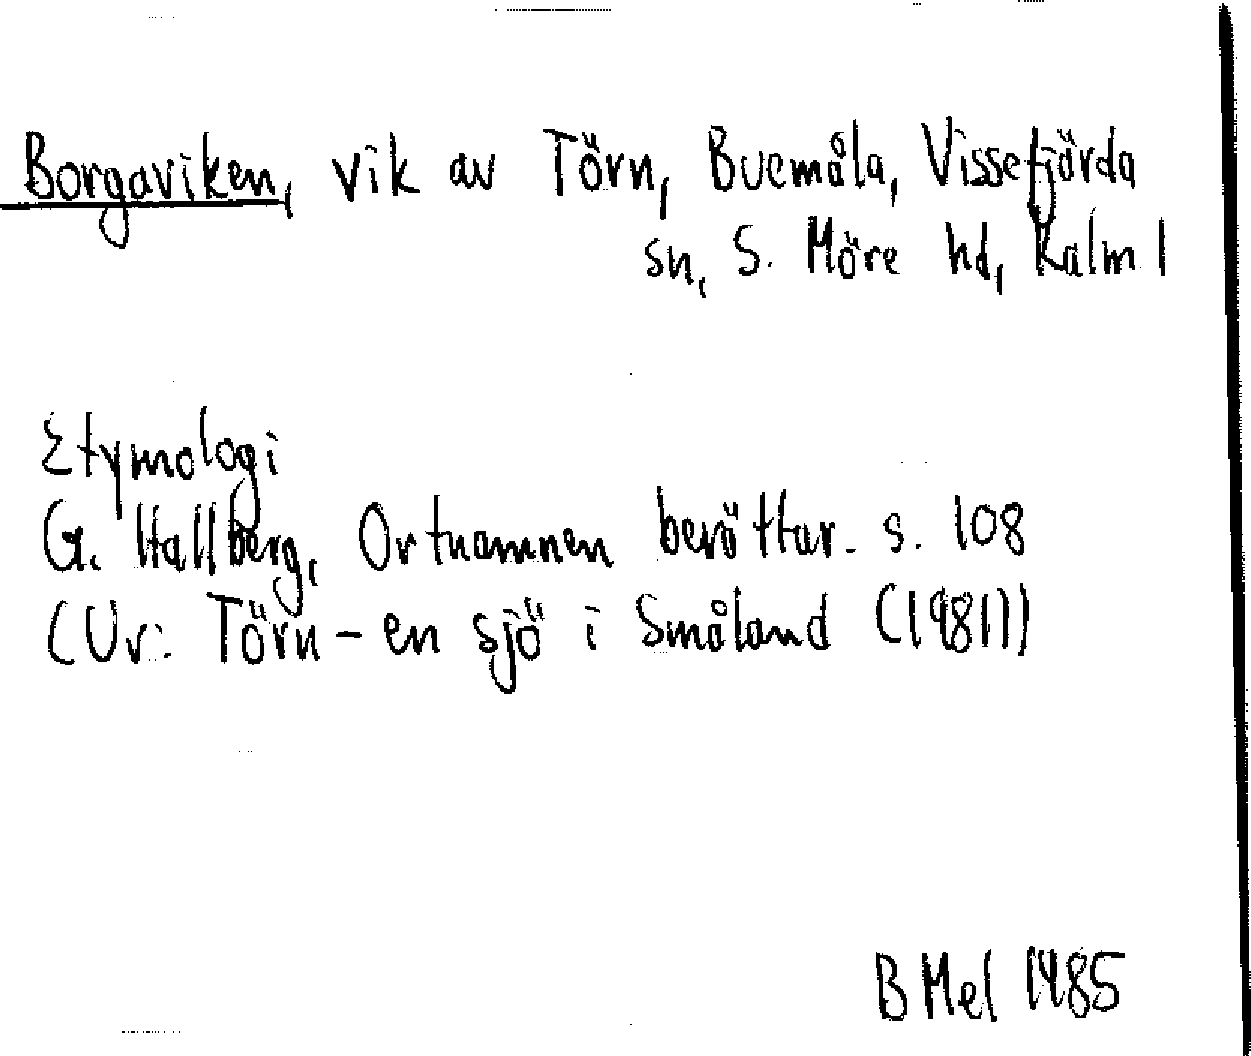 Borgaviken, vik av Törn, Buemåla, Vissefjärda
sn, S. Möre hd, Kalm l
Etymologi
G. Hallberg, Ortnamnen berättar. s. 108
(Ur: Törn - en sjö i Småland (1981))
B Mel 1985